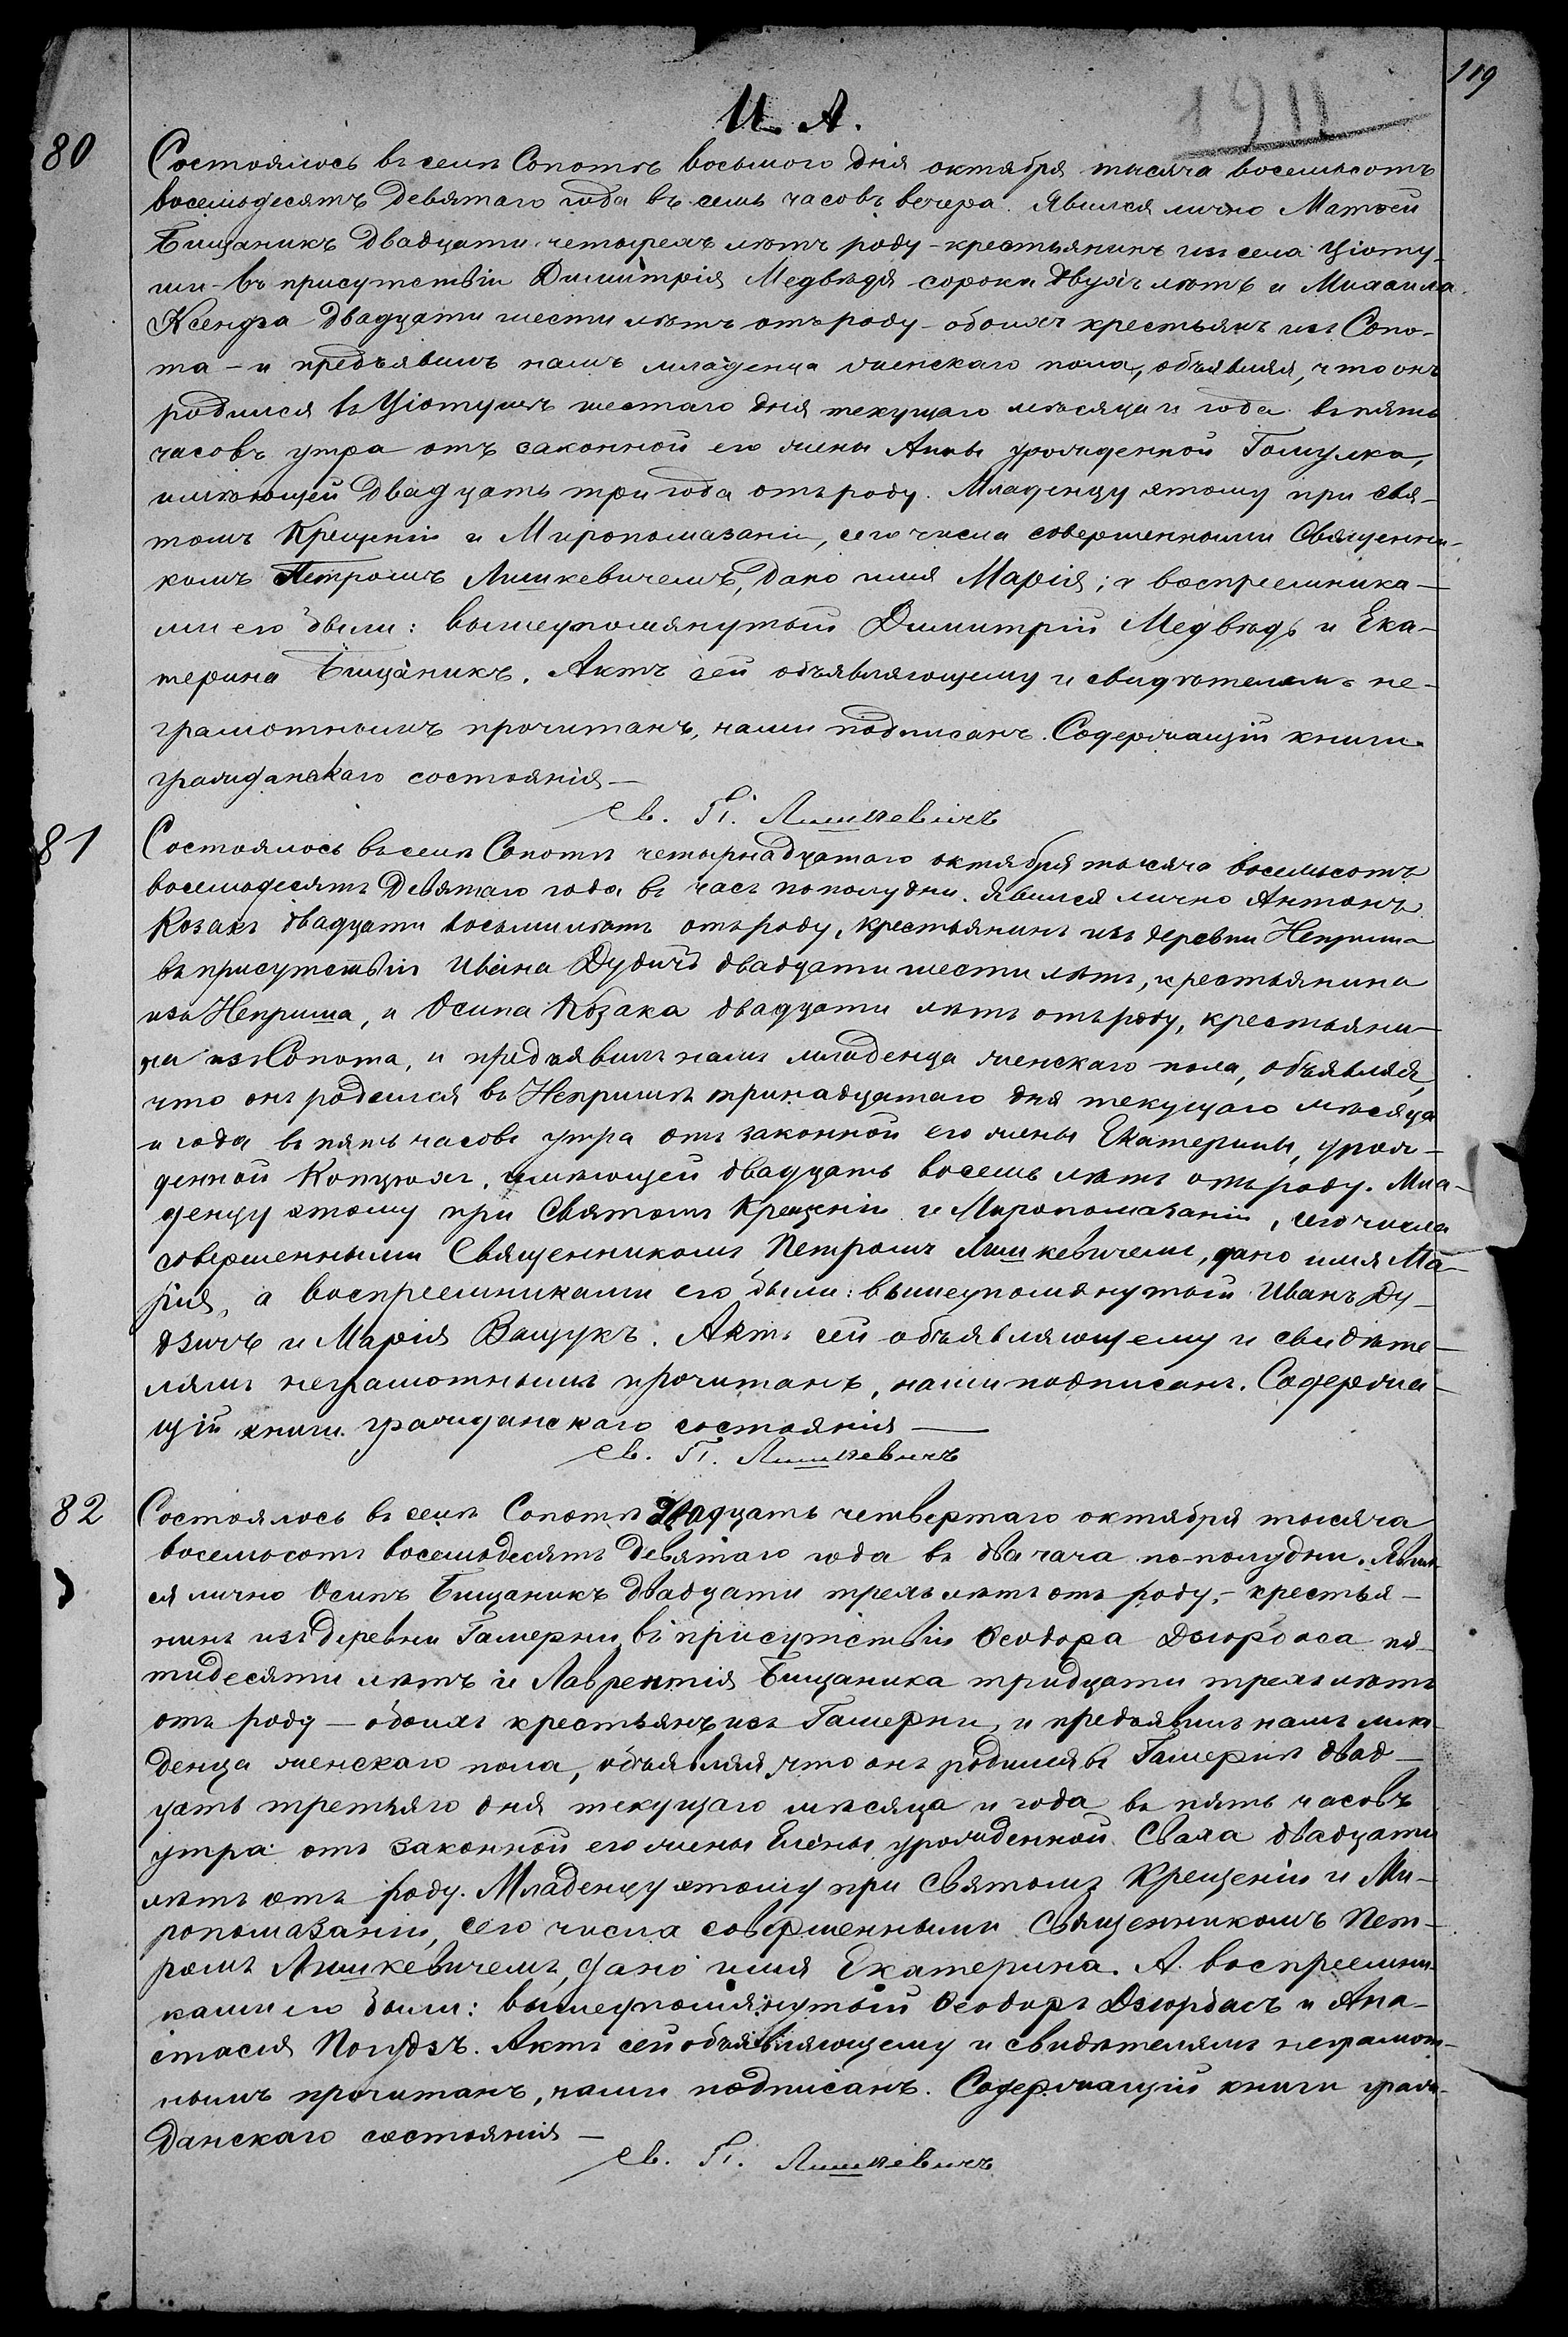 119
И. А.
1911
80
Состоялось въ селѣ Сопотѣ восьмого дня октября тысяча восемьсотъ
восемьдесятъ девятаго года въ семь часовъ вечера. Явился лично Матѳей
Бищаникъ двадцати четырехъ лѣтъ роду - крестьянинъ изъ села Ціоту-
ши - въ присутствіи Димитрія Медвѣдя сорока двухъ лѣтъ и Михаила
Ксендза двадцати шести лѣтъ отъ роду - обоихъ крестьянъ изъ Сопо-
та - и предъявилъ намъ младенца женскаго пола, объявляя, что онъ
родился въ Ціотушѣ шестаго дня текущаго мѣсяца и года въ пять
часовъ утра отъ законной его жены Анны урожденной Гомулка,
имѣющей двадцать три года отъ роду. Младенцу этому при свя-
томъ Крещеніи и Миропомазаніи, сего числа совершенными Священни-
комъ Петромъ Лишкевичемъ, дано имя Марія; а воспреемника-
ми его были: вышеупомянутый Димитрій Медвѣдь и Ека-
терина Бищаникъ. Актъ сей объявляющему и свидѣтелямъ не-
грамотнымъ прочитанъ, нами подписанъ. Содержащій книги
гражданскаго состоянія —
Св. П. Лишкевичъ
81
Состоялось въ селѣ Сопотѣ четырнадцатаго октября тысяча восемьсотъ
восемьдесятъ девятаго года въ часъ пополудни. Явился лично Антонъ
Козакъ двадцати восьми лѣтъ отъ роду, крестьянинъ изъ деревни Неприша
въ присутствіи Ивана Дудзичъ двадцати шести лѣтъ, крестьянина
изъ Неприша, и Осипа Козака двадцати лѣтъ отъ роду, крестьяни-
на изъ Сопота, и предъявилъ намъ младенца женскаго пола, объявляя,
что онъ родился въ Непришѣ тринадцатаго дня текущаго мѣсяца
и года въ пять часовъ утра отъ законной его жены Екатерины, урож-
денной имѣющей двадцать восемь лѣтъ отъ роду. Мла-
денцу этому при Святомъ Крещеніи и Миропомазаніи, сего числа
совершенными Священникомъ Петромъ Лишкевичемъ, дано имя Ма-
рія, а воспреемниками его были: вышеупомянутый Иванъ Ду-
дзичъ и Марія Ващукъ. Актъ сей объявляющему и свидѣте-
лямъ неграмотнымъ прочитанъ, нами подписанъ. Содержа-
щій книги гражданскаго состоянія —
Св. П. Лишкевичъ
82
Состоялось въ селѣ Сопотѣ двадцать четвертаго октября тысяча
восемьсотъ восемьдесятъ девятаго года въ два часа по-полудни. Явил-
ся лично Осипъ Бищаникъ двадцати трехъ лѣтъ отъ роду, - крестья-
нинъ изъ деревни Гамерни въ присутствіи Ѳеодора Дзюрбаса пя-
тидесяти лѣтъ и Лаврентія Бищаника тридцати трехъ лѣтъ
отъ роду — обоихъ крестьянъ изъ Гамерни, и предъявилъ намъ мла-
денца женскаго пола, объявляя что онъ родился въ Гамернѣ двад-
цать третьяго дня текущаго мѣсяца и года въ пять часовъ
утра отъ законной его жены Елены урожденной Сваха двадцати
лѣтъ отъ роду. Младенцу этому при Святомъ Крещеніи и Ми-
ропомазаніи, сего числа совершенными Священникомъ Пет-
ромъ Лишкевичемъ, дано имя Екатерина. А воспреемни-
ками его были: вышеупомянутый Ѳеодоръ Дзюрбасъ и Ана-
стасія Актъ сей объявляющему и свидѣтелямъ неграмот-
нымъ прочитанъ, нами подписанъ. Содержащій книги граж-
данскаго состоянія —
Св. П. Лишкевичъ